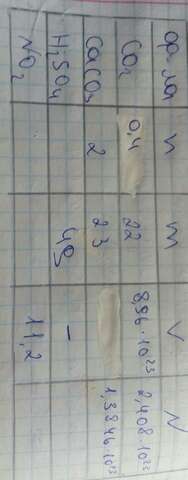 ф-ла n m V N
CO₂ 0,4 22 8,96·10²³ 2,408·10²³
CaCO₃ 2 23 1,3846·10²³
H₂SO₄ 49 –
NO₂ 11,2